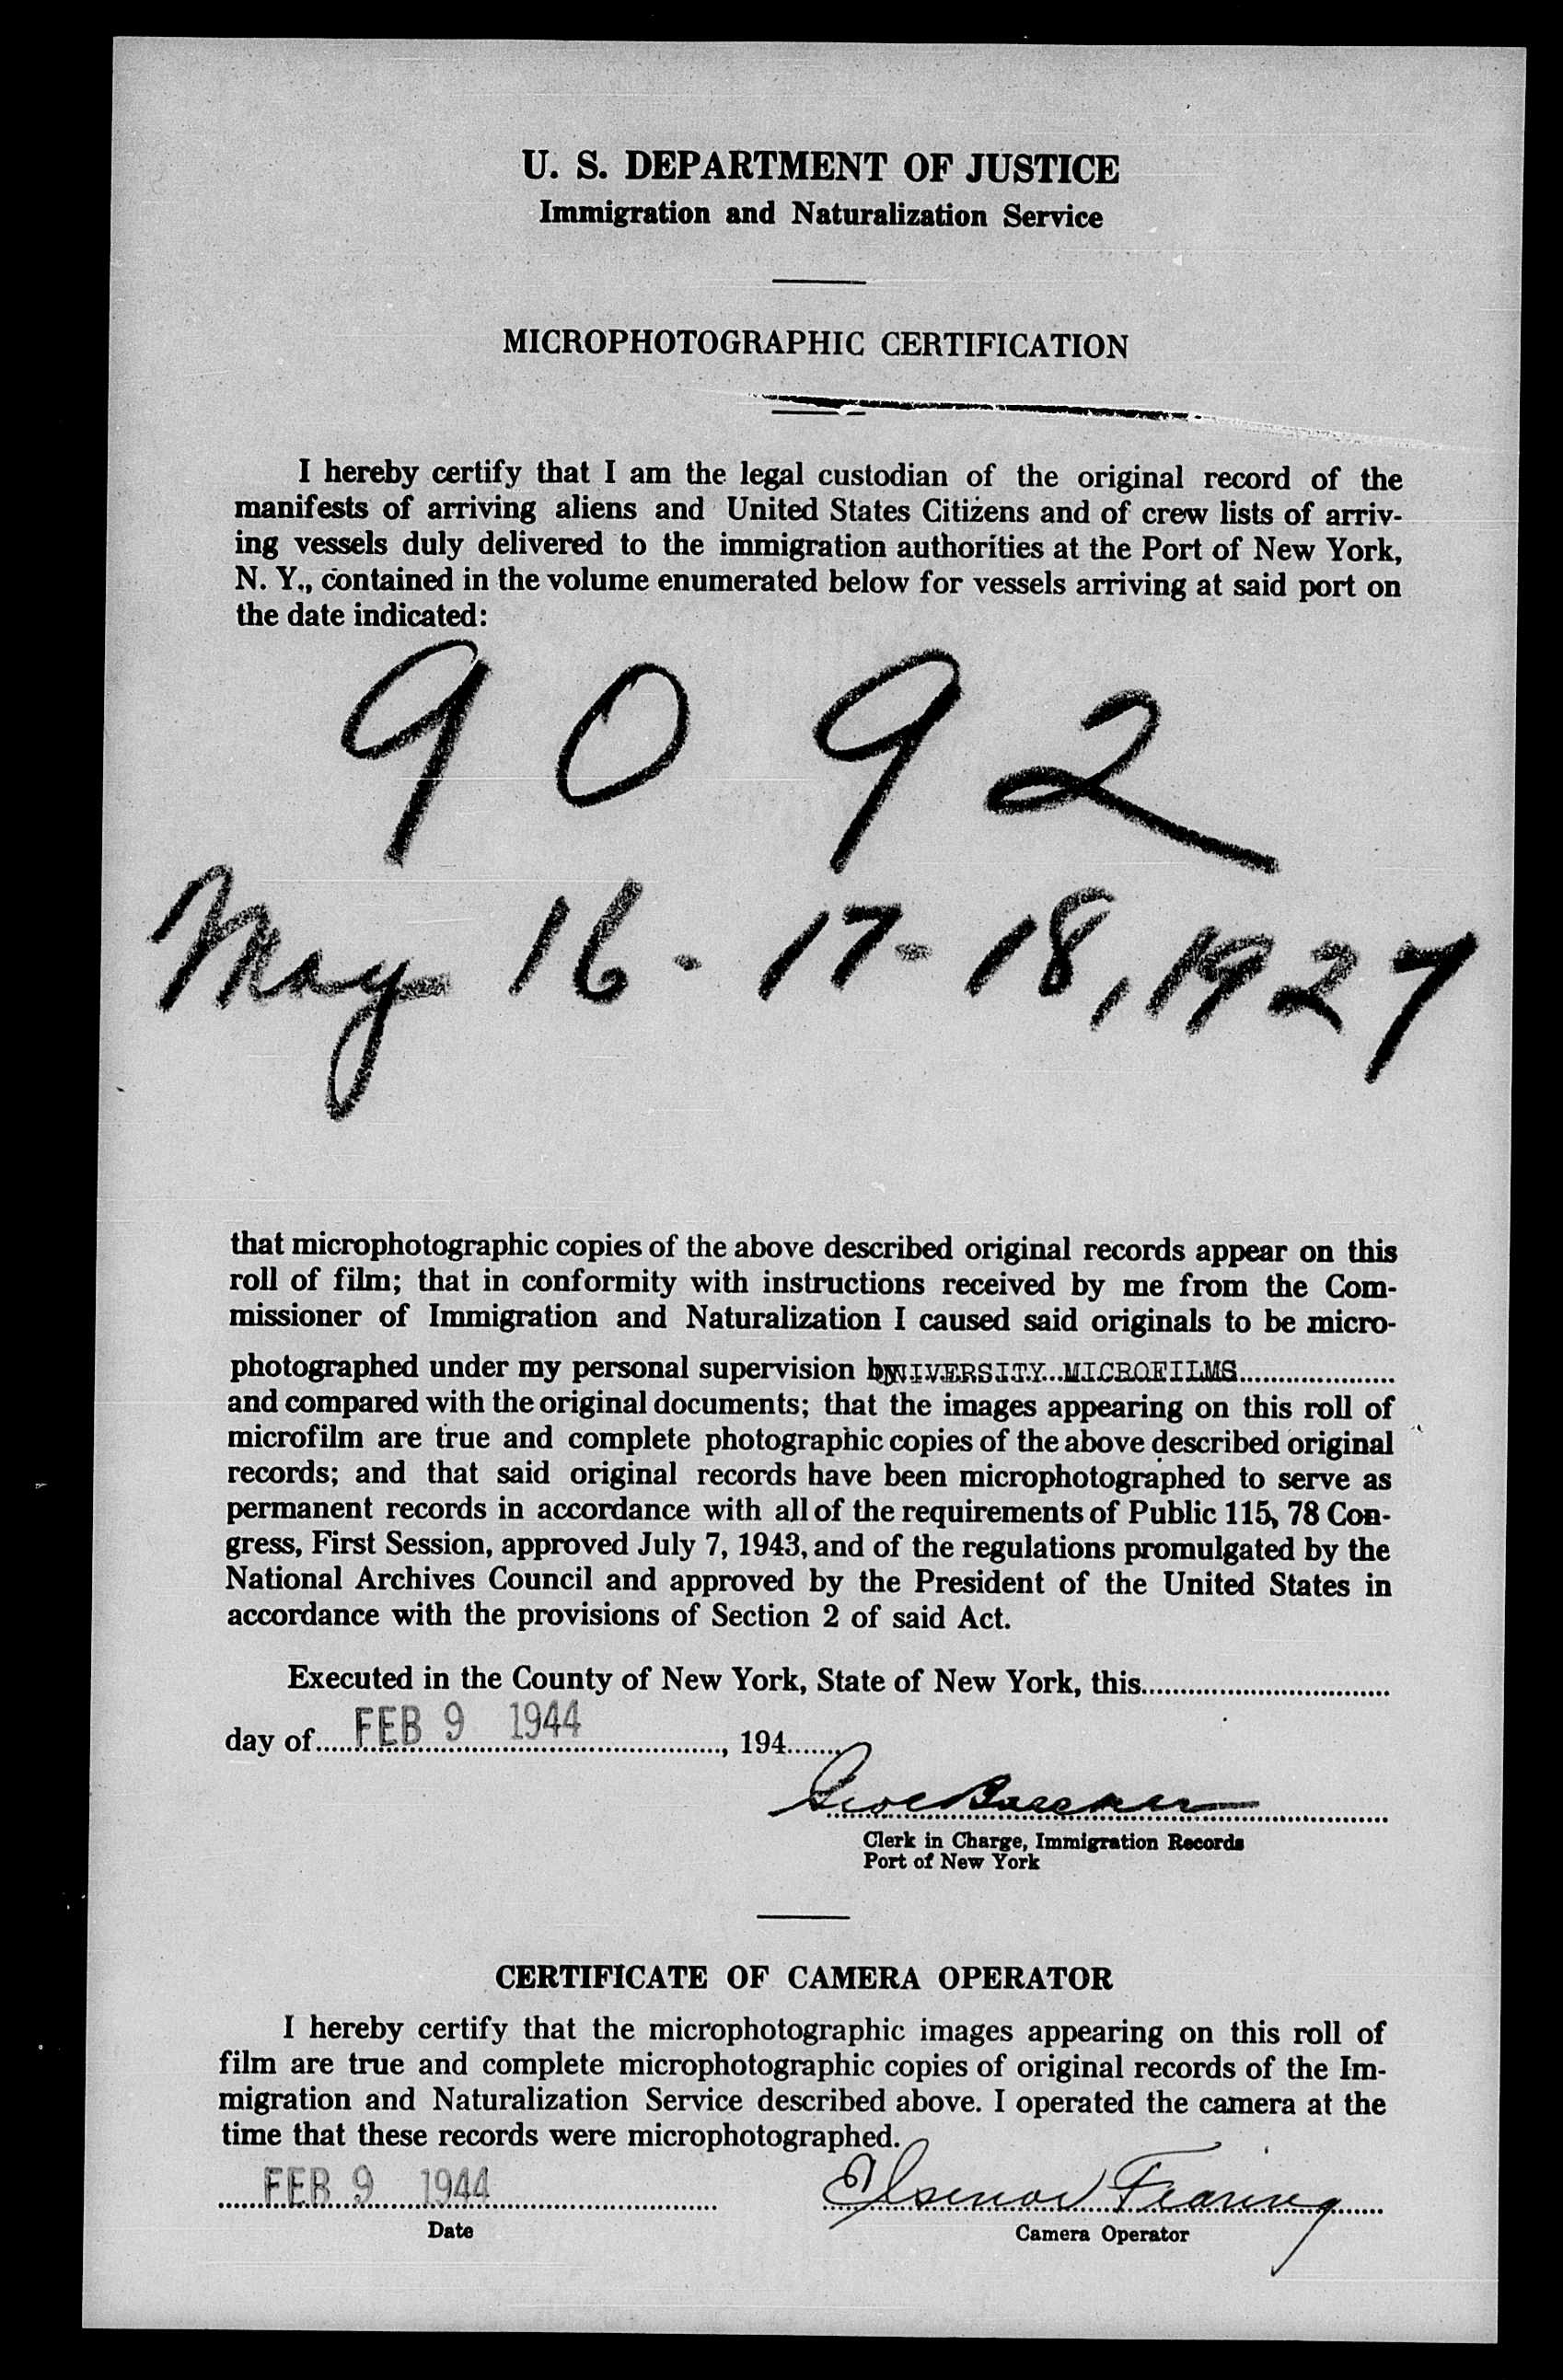 U. S. DEPARTMENT OF JUSTICE
Immigration and Naturalization Service
MICROPHOTOGRAPHIC CERTIFICATION
I hereby certify that I am the legal custodian of the original record of the
manifests of arriving aliens and United States Citizens and of crew lists of arriv-
ing vessels duly delivered to the immigration authorities at the Port of New York,
N. Y., contained in the volume enumerated below for vessels arriving at said port on
the date indicated:
9092
May 16 - 17 - 18, 1927
that microphotographic copies of the above described original records appear on this
roll of film; that in conformity with instructions received by me from the Com-
missioner of Immigration and Naturalization I caused said originals to be micro-
photographed under my personal supervision by UNIVERSITY MICROFILMS
and compared with the original documents; that the images appearing on this roll of
microfilm are true and complete photographic copies of the above described original
records; and that said original records have been microphotographed to serve as
permanent records in accordance with all of the requirements of Public 115, 78 Con-
gress, First Session, approved July 7, 1943, and of the regulations promulgated by the
National Archives Council and approved by the President of the United States in
accordance with the provisions of Section 2 of said Act.
Executed in the County of New York, State of New York, this
day of FEB 9 1944, 194
Clerk in Charge, Immigration Records
Port of New York
CERTIFICATE OF CAMERA OPERATOR
I hereby certify that the microphotographic images appearing on this roll of
film are true and complete microphotographic copies of original records of the Im-
migration and Naturalization Service described above. I operated the camera at the
time that these records were microphotographed.
FEB 9 1944 Fearing
Date Camera Operator